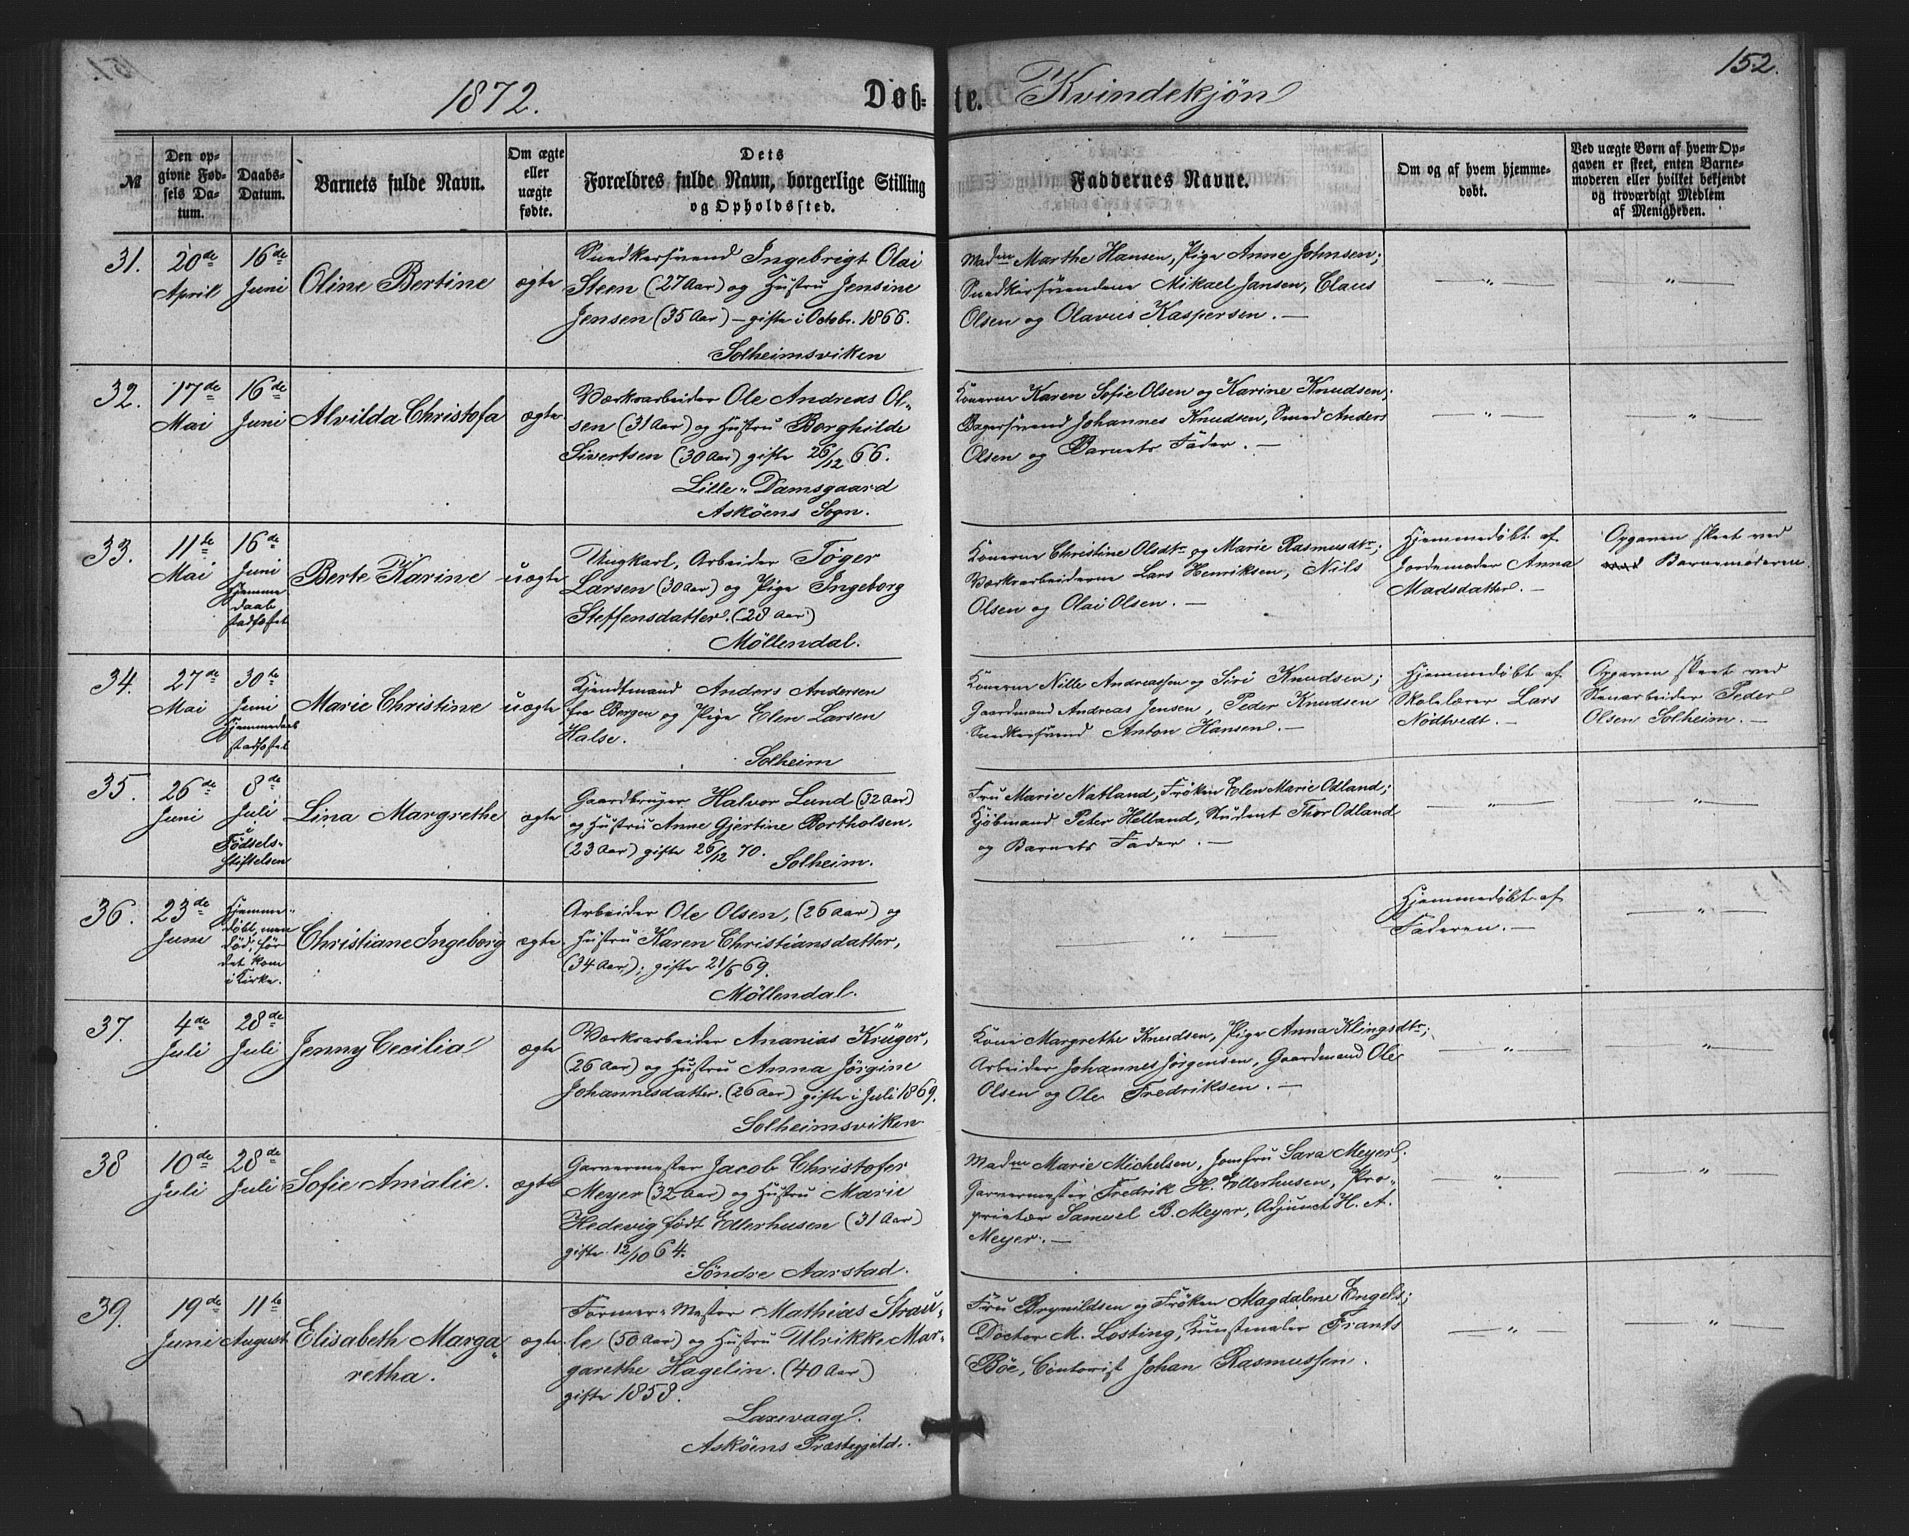 152.
1872.
Døb-te. Kvindekjøn
№
Den opgivne Fødsels Datum.
Daabs-Datum.
Barnets fulde Navn.
Om ægte eller uægte fødte.
Dets Forældres fulde Navn, borgerlige Stilling og Opholdssted.
Faddernes Navne.
Om og af hvem hjemmedøbt.
Ved uægte Børn af hvem Opgaven er skeet, enten Barnemoderen eller hvilket bekjendt og troværdigt Medlem af Menigheden.
31.
20de April
16de Juni
Oline Bertine
ægte
Snedkersvend Ingebrigt Olai
Steen (27 Aar) og Hustru Jensine
Jensen (35 Aar) – gifte i Octobr. 1866.
Solheimsviken
Madm Marthe Hansen, Pige Anne Johnsen;
Snedkersvendene Mikael Jansen, Claus
Olsen og Olavus Kaspersen. —
— " —
— " —
32.
17de Mai
16de Juni
Alvilda Christofa
ægte
Værksarbeider Ole Andreas Ol-
sen (31 Aar) og Hustru Borghilde
Sivertsen (30 Aar) gifte 26/12 66.
Lille-Damsgaard
Askøens Sogn.
Konerne Karen Sofie Olsen og Karine Knudsen;
Bagersvend Johannes Knudsen, Smed Anders
Olsen og Barnets Fader. —
— " —
"
33.
11te Mai
16de Juni
Hjemme
daab
stadfæstet
Berte Karine
uægte
Ungkarl, Arbeider Tøger
Larsen (30 Aar) og Pige Ingeborg
Steffensdatter. (28 Aar)
Möllendal.
Konerne Christine Olsdtr og Marie Rasmusdtr;
Værksarbeiderne Lars Henriksen, Nils
Olsen og Olai Olsen. —
Hjemmedøbt af
Jordemoder Anna
Madsdatter. —
Opgaven skeet ved
Barnemoderen
34.
27de Mai
30te Juni
Hjemmedaab
stadfæstet
Marie Christine
uægte
Kjendtmand Anders Andersen
fra Bergen og Pige Elen Larsen
Halse.
Solheim
Konerne Nille Andreassen og Siri Knudsen;
Gaardmand Andreas Jensen, Peder Knudsen
Snedkersvend Anton Hansen. —
Hjemmedøbt af
Skolelærer Lars
Nødtvedt. —
Opgaven skeet ved
Stenarbeider Peder
Olsen Solheim. —
35.
26de Juni
8de Juli
Fødsels-
stiftelsen
Lina Margrethe
ægte
Gaardbruger Halvor Lund (32 Aar)
og Hustru Anne Gjertine Bortholsen,
(23 Aar) gifte 26/12 70. Solheim.
Fru Marie Natland, Frøken Elen Marie Odland;
Kjøbmand Peter Helland, Student Thor Odland
og Barnets Fader. —
— " —
— " —
36.
23de Juni
Hjemme-
døbt, men
død, før
det kom
i Kirke.
Christiane Ingeborg
ægte
Arbeider Ole Olsen, (26 Aar) og
Hustru Karen Christiansdatter,
(34 Aar); gifte 21/6 69.
Möllendal.
— " —
Hjemmedøbt af
Faderen. —
— " —
37.
4de Juli
28de Juli
Jenny Cecilia
ægte
Værksarbeider Ananias Krüger,
(26 Aar) og Hustru Anna Jørgine
Johannesdatter. (26 Aar) gifte i Juli 1869.
Solheimsviken
Kone Margrethe Knudsen, Pige Anna Klingsdtr;
Arbeider Johannes Jörgensen, Gaardmand Ole
Olsen og Ole Fredriksen. —
— " —
— " —
38
10de Juli
28de Juli
Sofie Amalie.
ægte
Garvermester Jacob Christofer
Meyer (32 Aar) og Hustru Marie
Hedevig født Ellerhusen (31 Aar)
gifte 12/10 64.
Søndre Aarstad.
Madm Marie Michelsen, Jomfru Sara Meyer;
Garvermester Fredrik H. Ellerhusen, Pro-
prietær Samuel B. Meyer, Adjunct H. A.
Meyer. —
— " —
— " —
39.
19de Juni
11te August
Elisabeth Marga-
retha.
ægte
Former-Mester Mathias Strau-
le (50 Aar) og Hustru Ulrikke Mar-
garethe Hagelin. (40 Aar)
gifte 1858.
Laxevaag.
Askøens Præstegjeld.
Fru Brynildsen og Frøken Magdalene Engels;
Doctor M. Losting, Kunstmaler Frants
Böe, Contorist Johan Rasmussen.
— " —
— " —